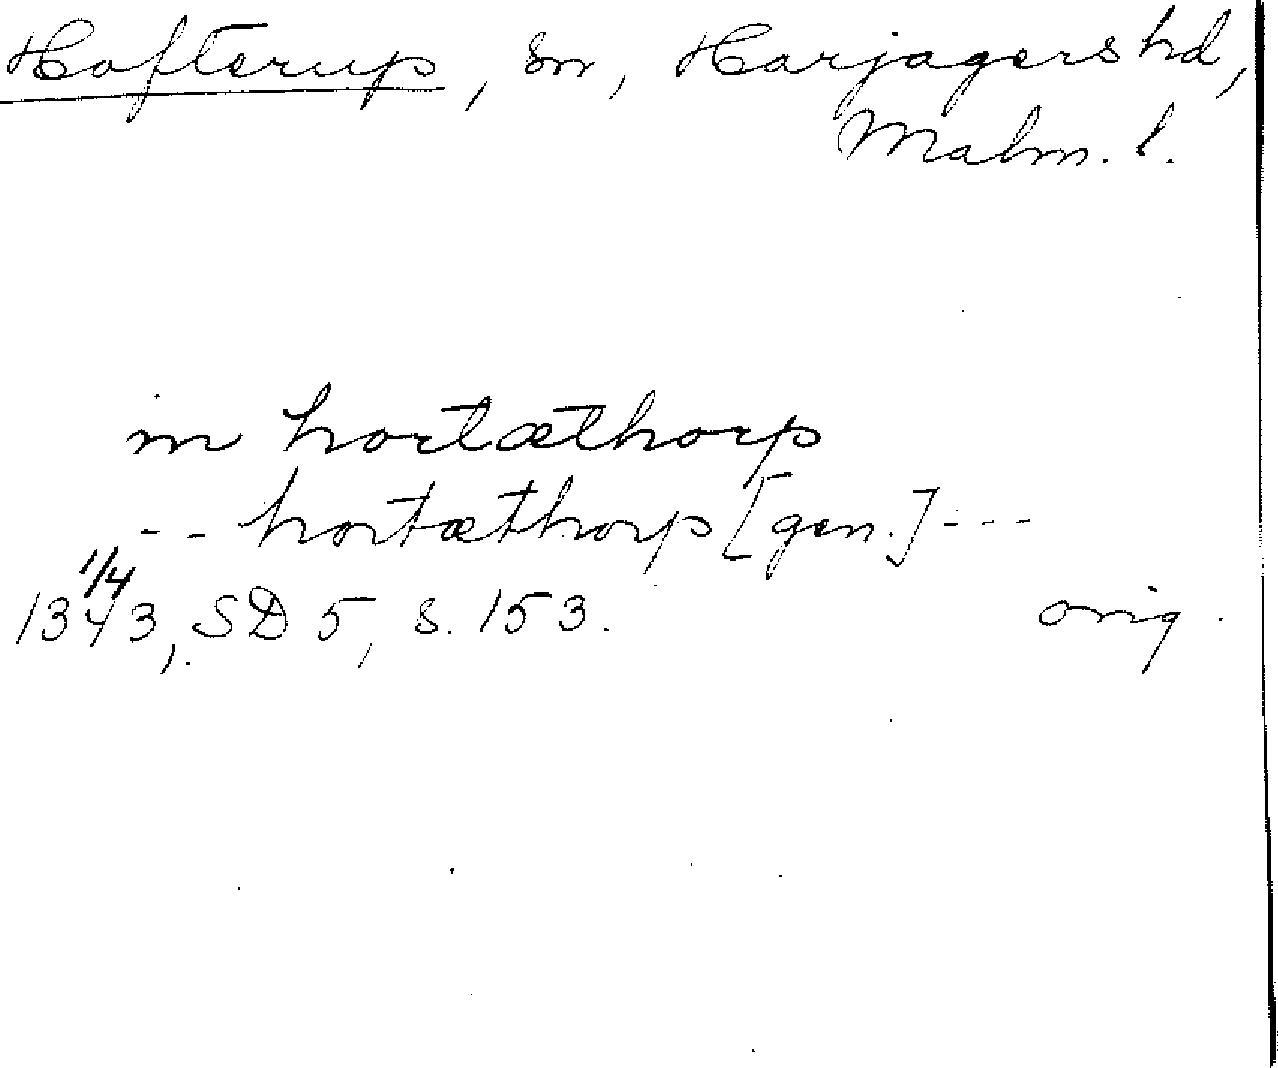 Hofterup, sn, Harjagers hd,
Malm. l.
in hortæthorp
-- hortæthorp [gen.] ---
1/4
1343, SD 5, s. 153. orig.